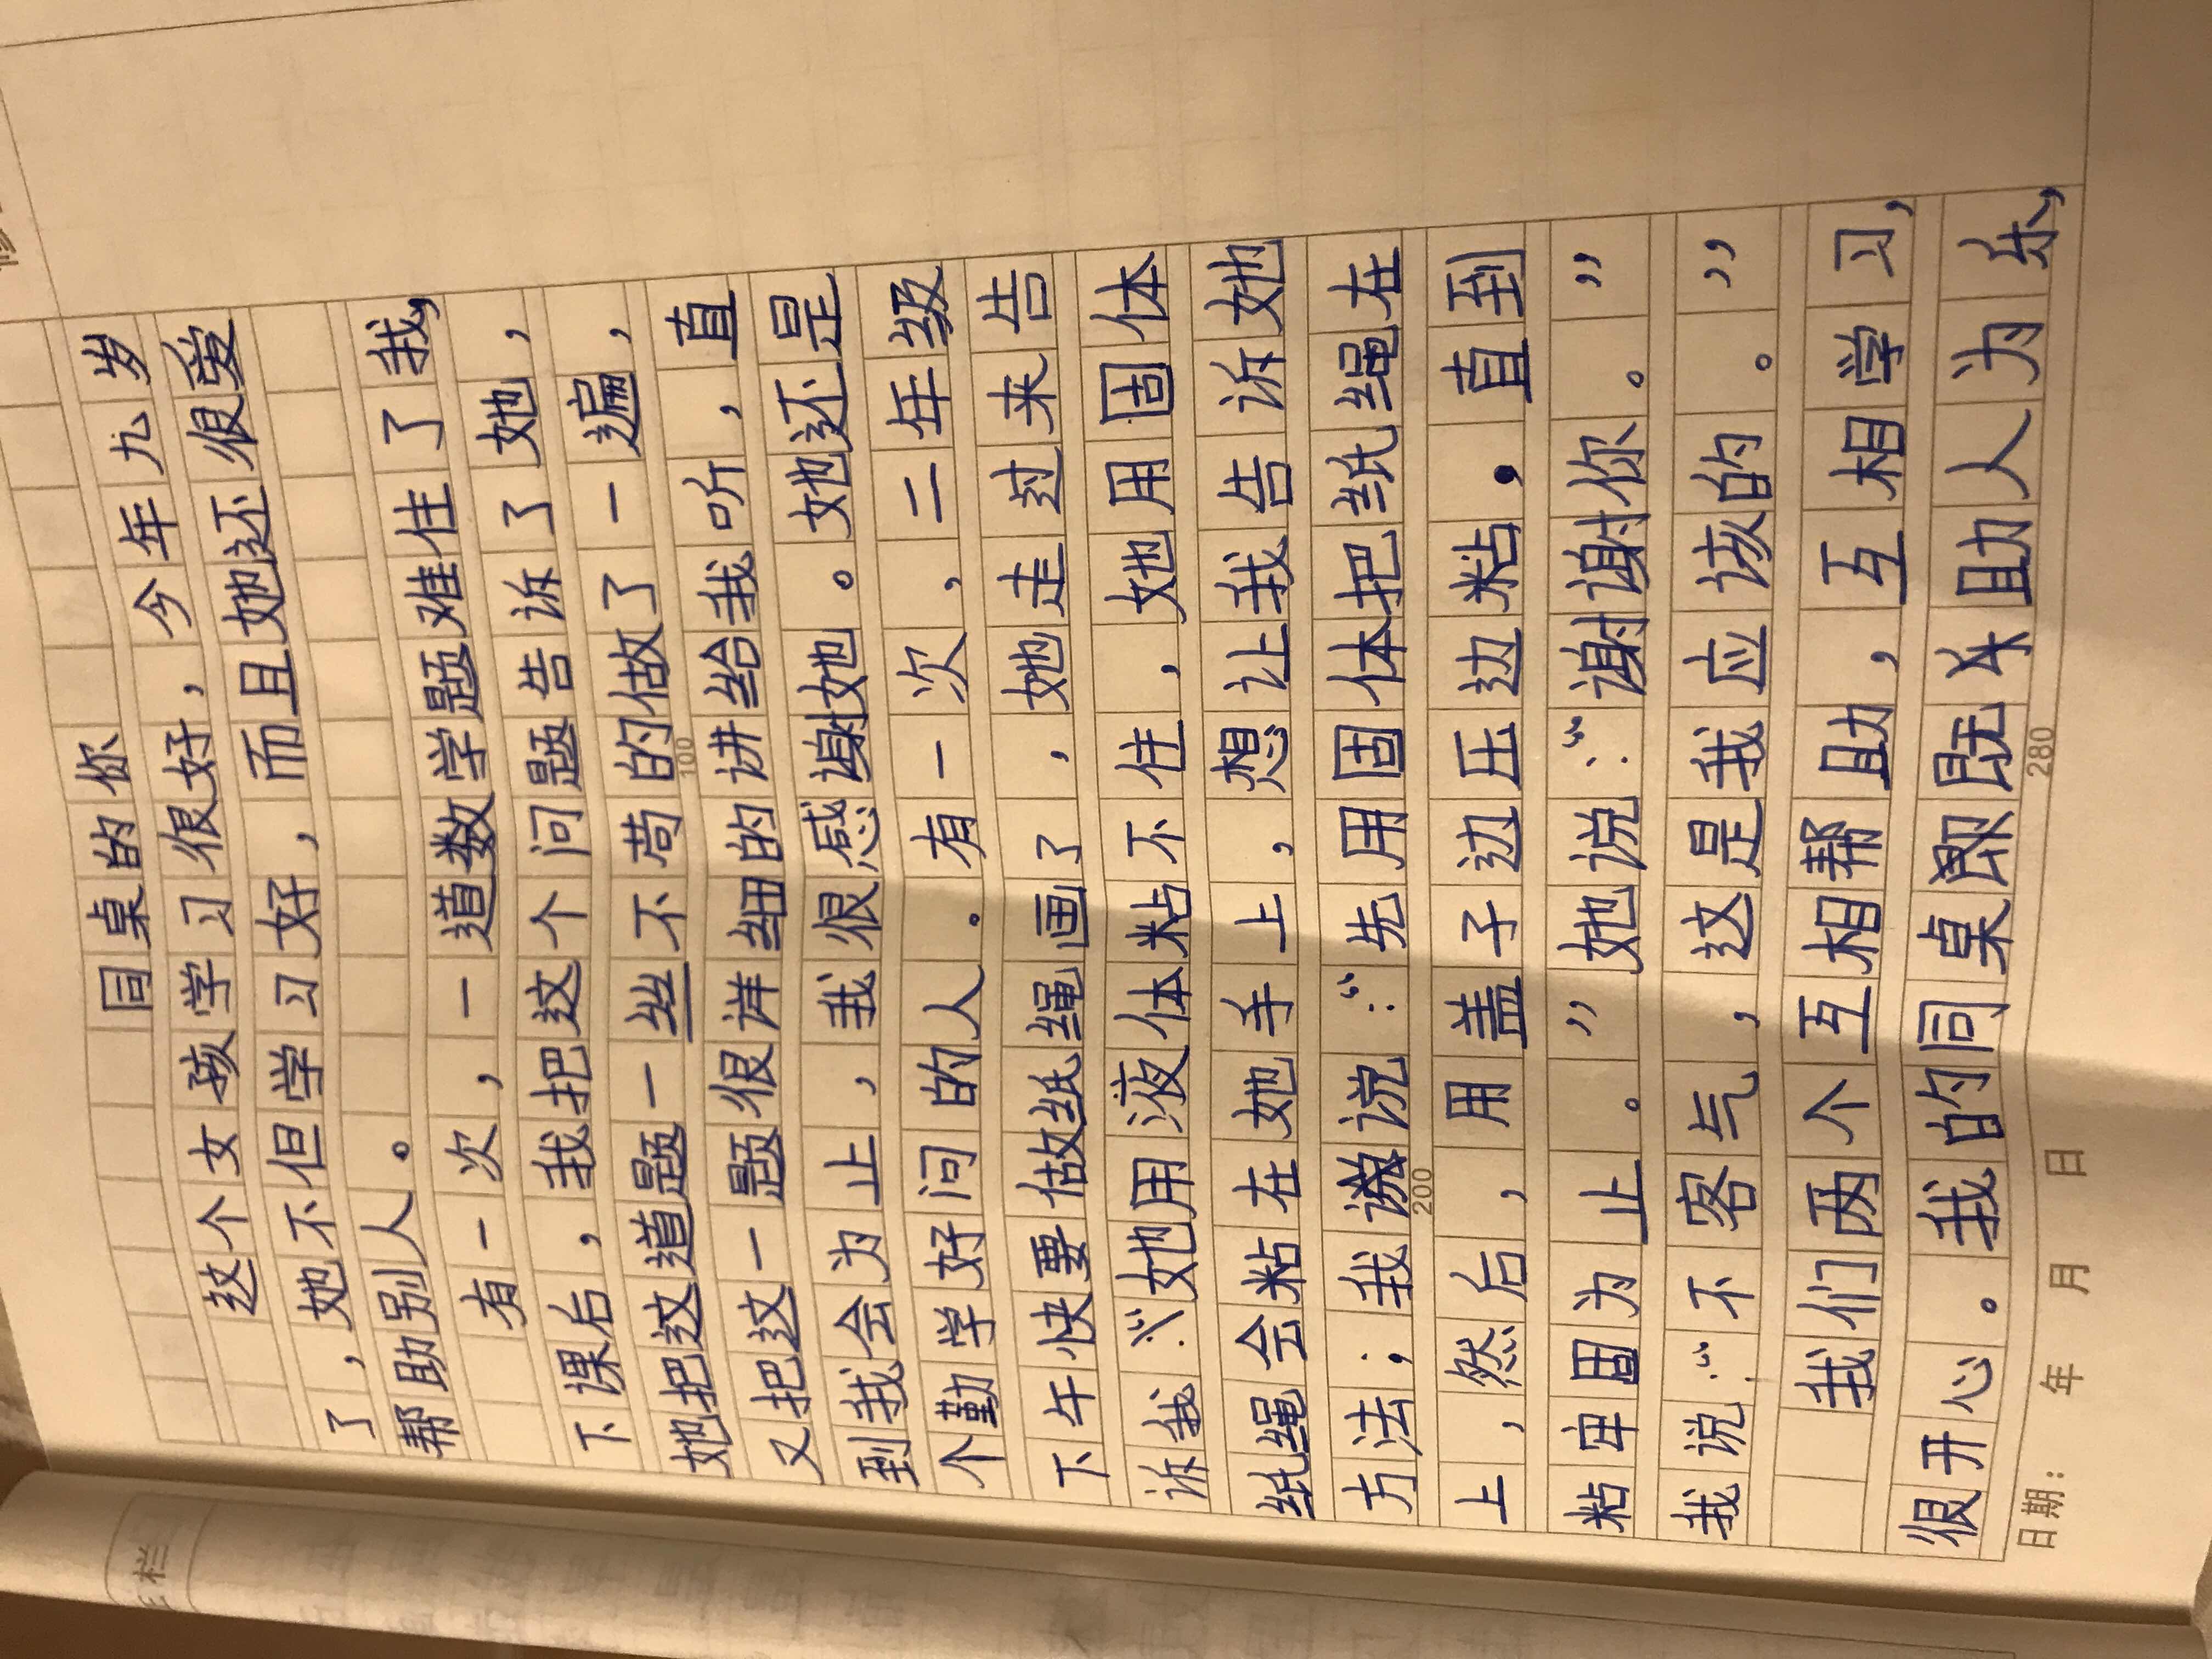 同桌的你
这个女孩学习很好，今年九岁
了，她不但学习好，而且她还很爱
帮助别人。
有一次，一道数学题难住了我，
下课后，我把这个问题告诉了她，
她把这道题一丝不苟的做了一遍，
又把这一题很详细的讲给我听，直
到我会为止，我很感谢她。她还是
个勤学好问的人。有一次，二年级
下午快要做纸绳画了，她走过来告
诉我：“她用液体粘不住，她用固体
纸绳会粘在她手上，想让我告诉她
方法；我说：“先用固体把纸绳在
上，然后，用盖子边压边粘，直到
粘牢固为止。”她说：“谢谢你。”
我说：“不客气，这是我应该的。”
我们两个互相帮助，互相学习，
很开心。我的同桌既助人为乐，
100
200
280
日期： 年 月 日